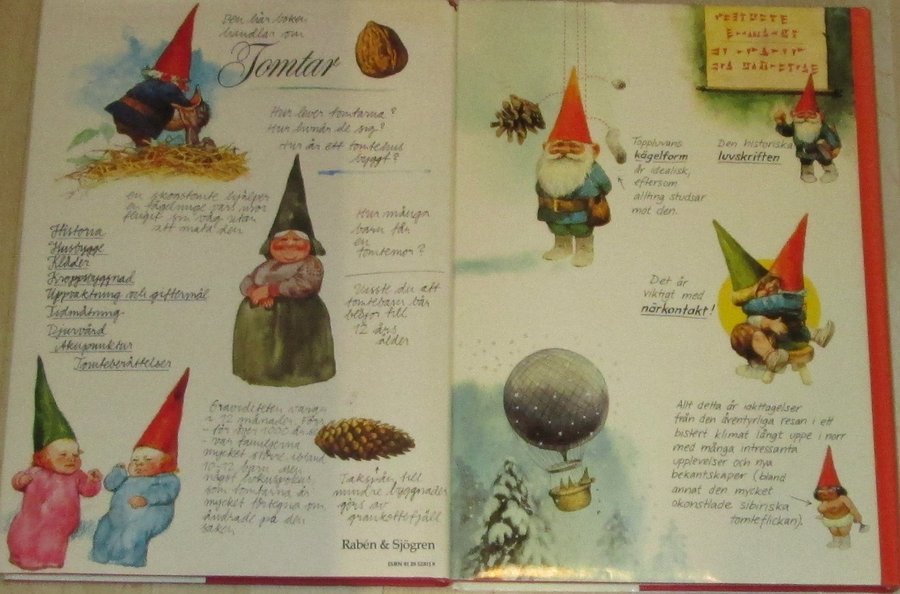 Den här boken
handlar om
Tomtar
Hur lever tomtarna?
Hur klär de sig?
Hur är ett tomtehus
byggt?
en skogstomte hjälper
en fågelunge vars mor
flugit sin väg utan
att mata den
Historia
Husbygge
Kläder
Kroppsbyggnad
Uppvaktning och giftermål
Tidmätning
Djurvård
Akupunktur
Tomteberättelser
Hur många
barn får
en
tomtemor?
Visste du att
tomtebarn bär
blöjor till
12 års
ålder
Graviditeten varar
i 12 månader. Förr
- för över 1000 år sedan
- var familjerna
mycket större, ibland
10-12 barn
något
som tomtarna är
mycket förtegna om
ändrade på den
saken
Takspån till
mindre byggnader
görs av
grankottefjäll
Rabén & Sjögren
Toppluvans
kägelform
är idealisk,
eftersom
allting studsar
mot den.
Den historiska
luvskriften
Det är
viktigt med
närkontakt!
Allt detta är iakttagelser
från den äventyrliga resan i ett
bistert klimat långt uppe i norr
med många intressanta
upplevelser och nya
bekantskaper (bland
annat den mycket
okonstlade sibiriska
tomteflickan).